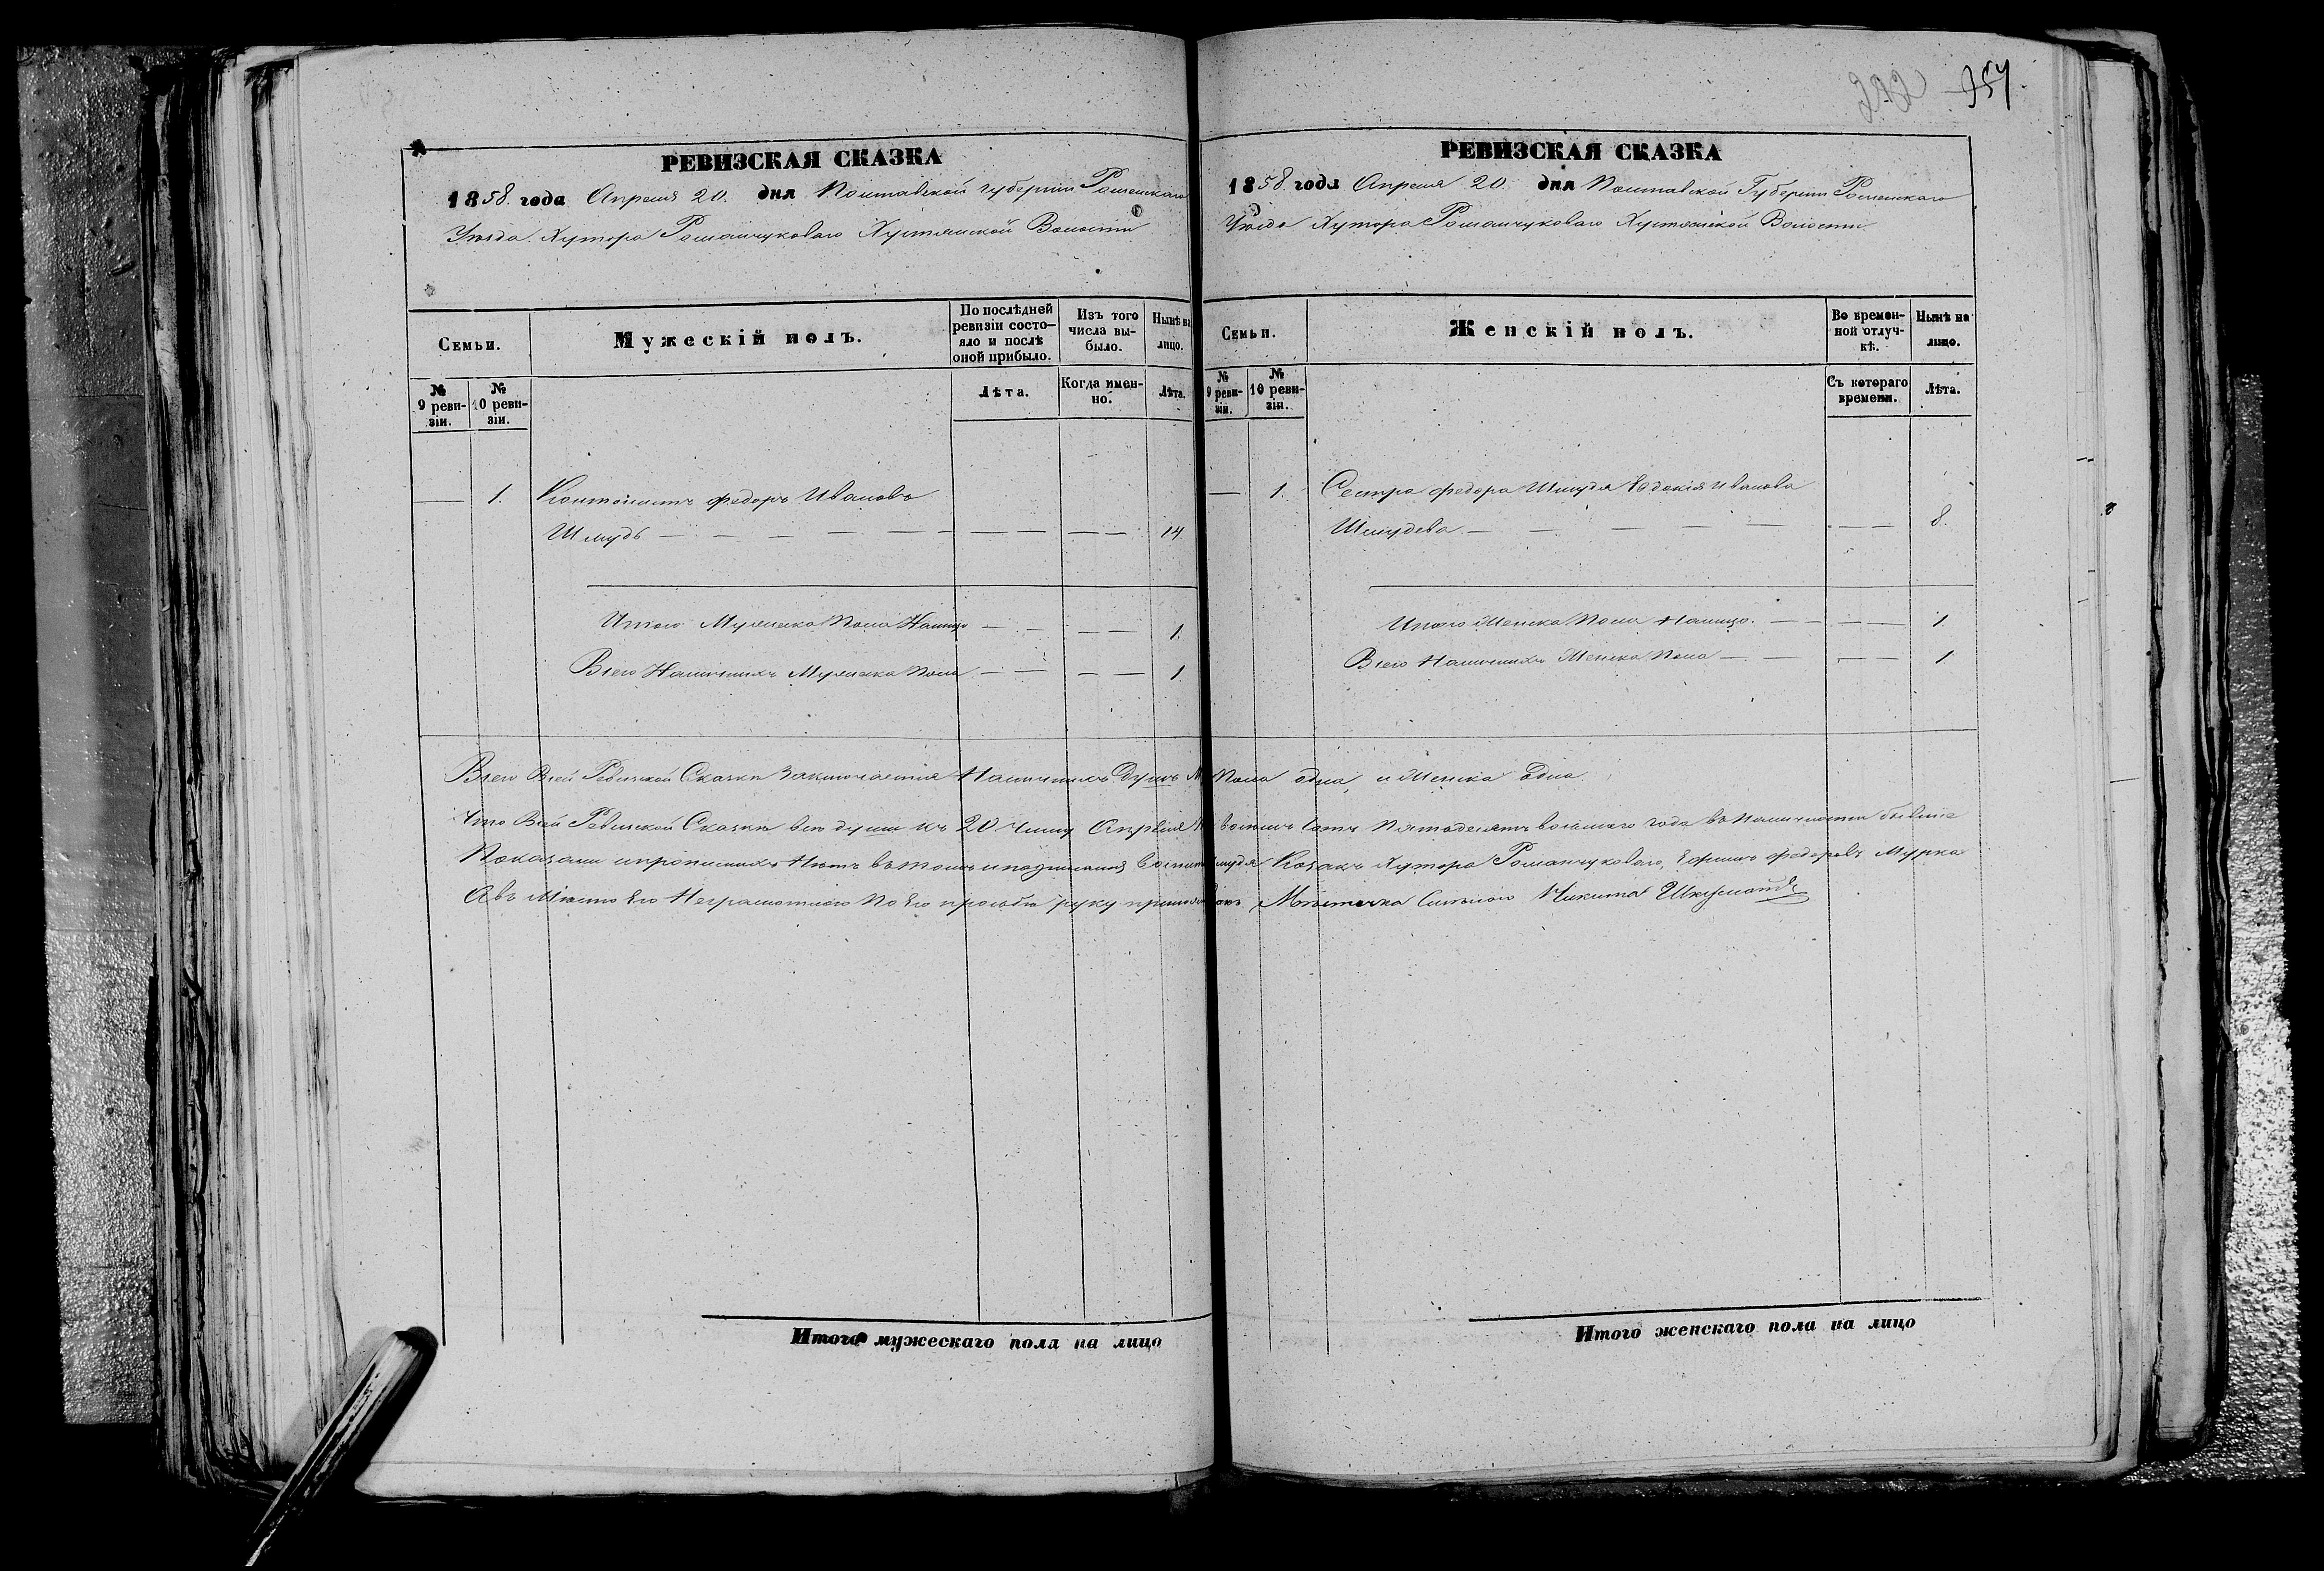 232 257.
РЕВИЗСКАЯ СКАЗКА
1858. года Апреля 20. дня Полтавской Губерніи Роменскаго
Уѣзда. Хутора Романчуковаго Хустянской Волости
Семьи.
Мужескій полъ.
По послѣдней ревизіи состо-
яло и послѣ
оной прибыло.
Изъ того
числа вы-
было.
Нынѣ на
лицо.
№
9 реви-
зіи.
№
10 реви-
зіи.
Лѣта.
Когда имен-
но.
Лѣта.
— 1. Федоръ Ивановъ
Шмудь — — — — — — — — — 14
Итого Мужеска Пола Налицо — — — — 1.
Всего Наличныхъ Мужеска Пола — — — — 1
РЕВИЗСКАЯ СКАЗКА
1858. года Апреля 20 дня Полтавской Губерніи Роменскаго
Уѣзда Хутора Романчуковаго Хустянской Волости
Семьи.
Женскій полъ.
Во времен-
ной отлуч-
кѣ.
Нынѣ на
лицо.
№
9 реви-
зіи.
№
10 реви-
зіи.
Съ котораго
времени.
Лѣта.
— 1. Сестра Федора Шмудя Евдокія Иванова
Шмудева — — — — — — 8.
Итого Женска Пола Налицо. — — — — 1.
Всего Наличныхъ Женска Пола — — — — 1
Всего Всей Ревизской Сказки Заключается Наличныхъ Душъ М Пола одна, и Женска одна
Что Всей Ревизской Сказки все души къ 20 Числу Апреля восемь сотъ Пятьдесятъ восьмого года въ наличности бывшіе
Показаны и прописныхъ Нѣтъ въ томъ Козакъ Хутора Романчуковаго, Ефимъ Федоровъ Мурка
А въ Мѣсто Его Неграмотнаго По Его прозьбѣ руку Мѣстечка Смѣлого Никита
Итого мужескаго пола на лицо
Итого женскаго пола на лицо